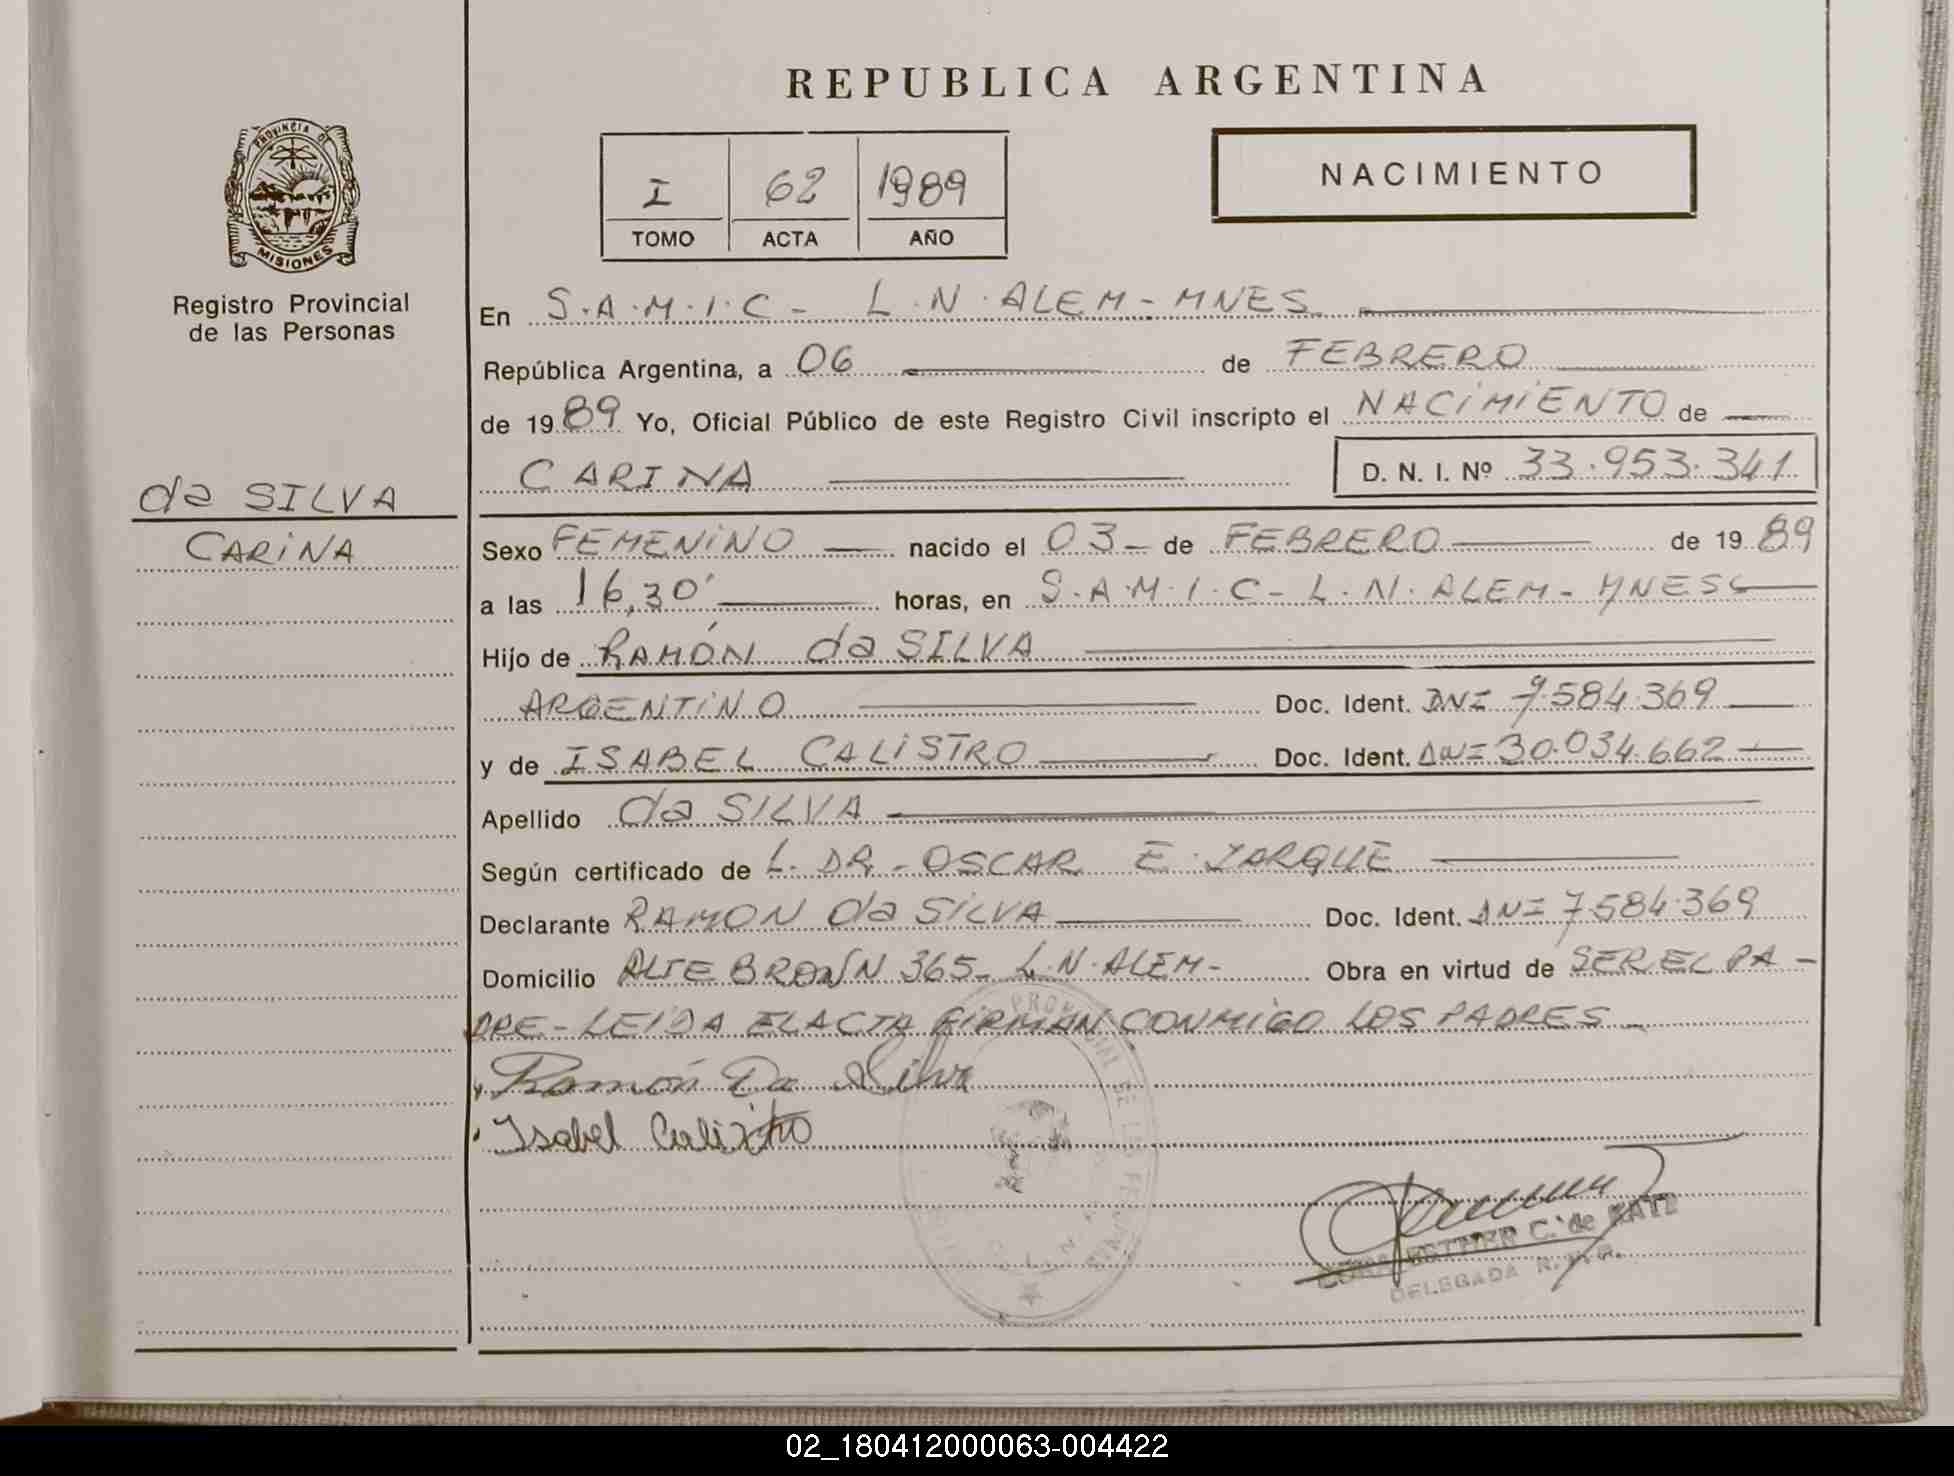 REPUBLICA ARGENTINA
PROVINCIA DE
MISIONES
Registro Provincial
de las Personas
I 62 1989
TOMO ACTA AÑO
NACIMIENTO
En S.A.M.I.C- L.N.ALEM-MNES
República Argentina, a 06 de FEBRERO
de 1989 Yo, Oficial Público de este Registro Civil inscripto el NACIMIENTO de
CARINA D. N. I. Nº 33.953.341
da SILVA
CARINA
Sexo FEMENINO nacido el 03 de FEBRERO de 1989
a las 16,30' horas, en S.A.M.I.C- L.N.ALEM-MNES
Hijo de RAMÓN da SILVA
ARGENTINO Doc. Ident. DNI 7.584.369
y de ISABEL CALISTRO Doc. Ident. DNI 30.034.662
Apellido da SILVA
Según certificado de L. DR-OSCAR E.
Declarante RAMON da SILVA Doc. Ident. DNI 7584.369
Domicilio ALTE BROWN 365- L.N.ALEM- Obra en virtud de SER EL PA-
DRE-LEIDA EL ACTA FIRMAN CONMIGO LOS PADRES
Ramón Da Silva
Isabel Calixtro
ESTHER C. de
DELEGADA
02_180412000063-004422